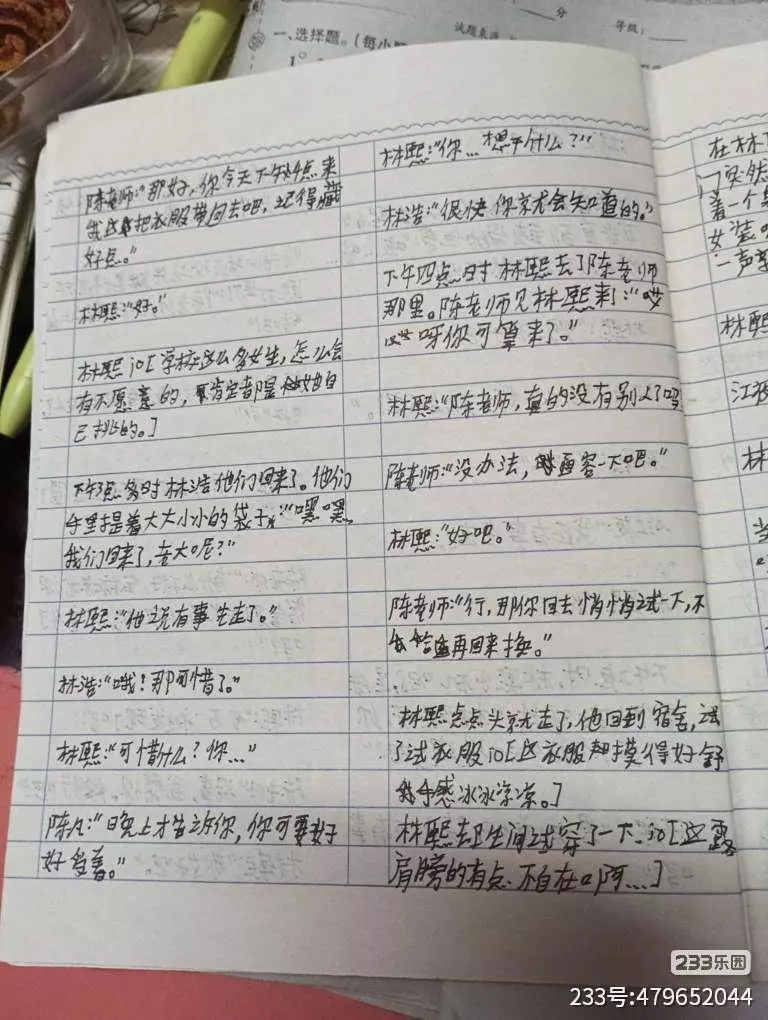 分
等级:
一、选择题。(每小
试题来源
陈老师:“那好,你今天下午4点来
我这把衣服带回去吧,记得藏
好点。”
林熙:“好。”
林熙io[学校这么多女生,怎么会
有不愿意的,肯定都是她自
己挑的。]
下午3点多时林浩他们回来了。他们
手里提着大大小小的袋子:“嘿嘿
我们回来了,老大呢?”
林熙:“他说有事先走了。”
林浩:“哦!那可惜了。”
林熙:“可惜什么?你...”
陈凡:“晚上才告诉你,你可要好
好等着。”
林熙:“你...想干什么?”
林浩:“很快你就会知道的。”
下午四点时林熙去了陈老师
那里。陈老师见林熙来了:“哎
呀你可算来了。”
林熙:“陈老师,真的没有别人了吗
陈老师:“没办法,通容一下吧。”
林熙:“好吧。”
陈老师:“行,那你回去悄悄试一下,不
合适再回来换。”
林熙点点头就走了,他回到宿舍,试
了试衣服io[这衣服摸得好舒
手感冰冰凉凉。]
林熙去卫生间试穿了一下io[这露
肩膀的有点不自在啊...]
在林
门突然
着一个
女装
一声
林熙
江
林
233乐园
233号:479652044